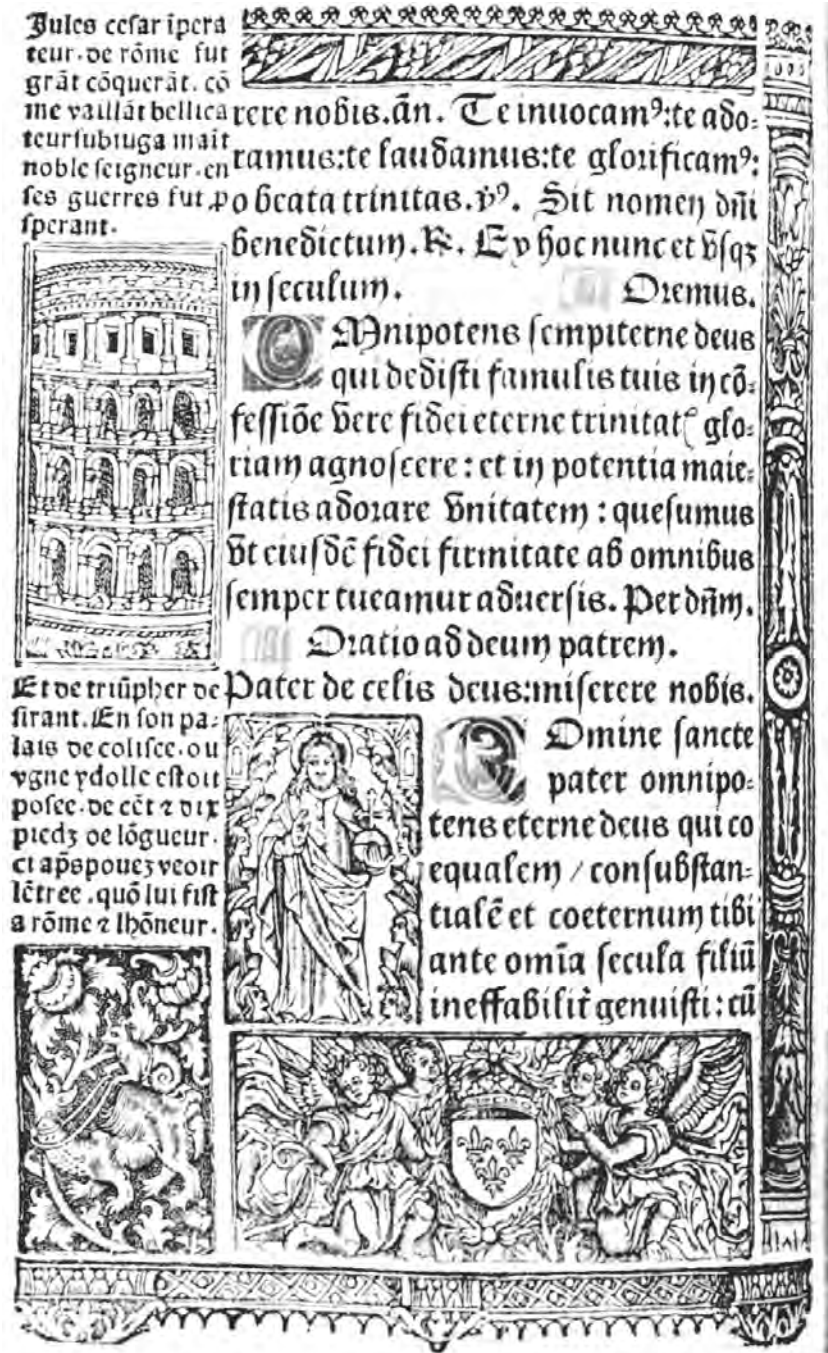 Jules cesar īpera
teur. de rōme fut
grāt cōquerāt. cō
me vaillāt bellica
teur subiuga maīt
noble seigneur. en
ses guerres fut ꝓ
sperant.
Et de triūpher de
sirant. En son pa⸗
lais de colisee. ou
vgne ydolle estoit
posee. de cēt ⁊ dix
piedz de lōgueur.
ci ap̄s pouez veoir
lētree. quō lui fist
a rōme ⁊ lhōneur.
rere nobis. ān. Te inuocamꝰ: te ado⸗
ramus: te laudamus: te glorificamꝰ:
o beata trinitas. v̄ꝰ. Sit nomen dn̄i
benedictum. ℟. Ex hoc nunc et vsqꝫ
in seculum. Oremus.
OMnipotens sempiterne deus
qui dedisti famulis tuis in cō⸗
fessiōe vere fidei eterne trinitatꝭ glo⸗
riam agnoscere: et in potentia maie⸗
statis adorare vnitatem: quesumus
vt eiusdē fidei firmitate ab omnibus
semper tueamur aduersis. Per dn̄m.
Oratio ad deum patrem.
Pater de celis deus: miserere nobis.
Omine sancte
pater omnipo⸗
tens eterne deus qui co
equalem / consubstan⸗
tialē et coeternum tibi
ante om̄ia secula filiū
ineffabilit̄ genuisti: cū